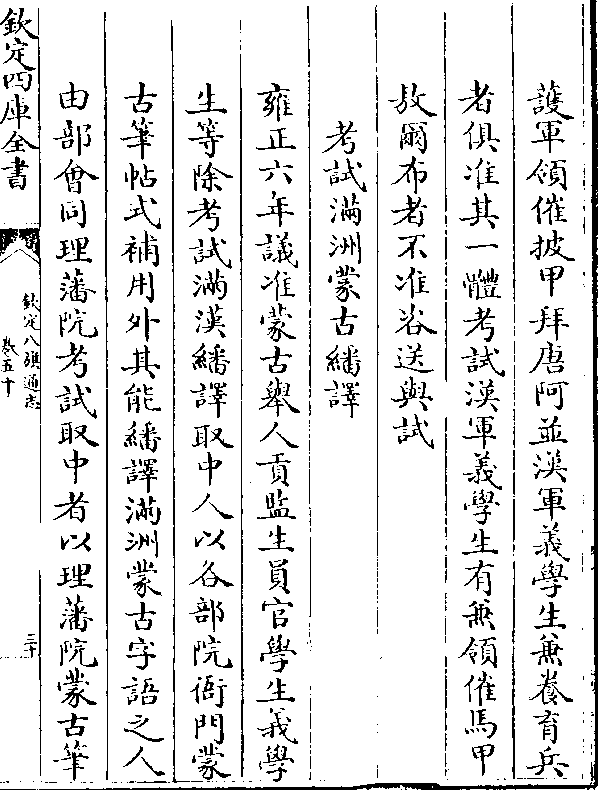 護軍領催披甲拜唐阿並漢軍義學生兼養育兵
者俱准其一體考試漢軍義學生有兼領催馬甲
敖爾布者不准咨送與試
考試滿洲蒙古繙譯
雍正六年議准蒙古舉人貢監生員官學生義學
生等除考試滿漢繙譯取中人以各部院衙門蒙
古筆帖式補用外其能繙譯滿洲蒙古字語之人
由部會同理藩院考試取中者以理藩院蒙古筆
欽定四庫全書
欽定八旗通志
卷五十
三十